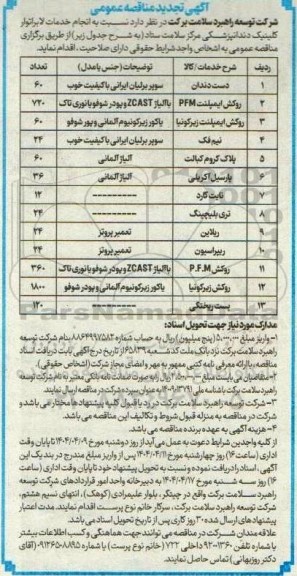 آگهی تجدید مناقصه عمومی
شرکت توسعه راهبرد سلامت برکت در نظر دارد نسبت به انجام خدمات لابراتوار
کلینیک دندانپزشکی مرکز سلامت ستاد (به شرح جدول زیر) از طریق برگزاری
مناقصه عمومی به اشخاص واجد شرایط حقوقی دارای صلاحیت، اقدام نماید.
ردیف شرح خدمات/ کالا توضیحات (جنس یا مدل) تعداد
۱ دست دندان سوپر برلیان ایرانی با کیفیت خوب ۶۰
۲ روکش ایمپلنت PFM با آلیاژ ZCAST و پودر شوفو یا نوری تاک ۷۲۰
۳ روکش ایمپلنت زیرکونیا با کور زیرکونیوم آلمانی و پودر شوفو ۶۰
۴ نیم فک سوپر برلیان ایرانی با کیفیت خوب ۲۴
۵ پلاک کروم کبالت آلیاژ آلمانی ۶۰
۶ پارسیل آکریلی آلیاژ آلمانی ۳۶
۷ نایت گارد --------- ۱۲
۸ تری بلیچینگ --------- ۲۴
۹ ریلاین تعمیر پروتز ۲۴
۱۰ ریپراسیون تعمیر پروتز ۲۴
۱۱ روکش P.F.M با آلیاژ ZCAST و پودر شوفو یا نوری تاک ۳۶۰
۱۲ روکش زیرکونیا با کور زیرکونیوم آلمانی و پودر شوفو ۱۸۰۰
۱۳ پست ریختگی --------- ۱۲۰
مدارک مورد نیاز جهت تحویل اسناد:
۱- واریز مبلغ ۵،۰۰۰،۰۰۰ (پنج میلیون) ریال به حساب شماره ۸۸۶۴۹۹۷۵۸۳ بنام شرکت توسعه
راهبرد سلامت برکت نزد بانک ملت کد شعبه ۶۵۸۳۹ از تاریخ درج آگهی بابت دریافت اسناد
مناقصه با ارائه معرفی نامه کتبی ممهور به مهر و امضای مجاز شرکت (اشخاص حقوقی)
۲- متقاضیان می بایست مبلغ ریال به صورت ضمانت نامه بانکی معتبر به نام شرکت توسعه
راهبرد سلامت برکت باشناسه ملی به عنوان سپرده شرکت در مناقصه ارسال نمایند.
۳- شرکت توسعه راهبرد سلامت برکت در رد یا قبول کلیه پیشنهادها مختار می باشد و
شرکت در مناقصه به منزله قبول شروط و تکالیف این مناقصه می باشد.
۴- هزینه آگهی به عهده برنده مناقصه می باشد.
از کلیه واجدین شرایط دعوت به عمل می آید از روز دوشنبه مورخ ۱۴۰۴/۰۴/۰۹ تا پایان وقت
اداری (ساعت ۱۶) روز چهارشنبه مورخ ۱۴۰۴/۰۴/۱۱ پس از واریز مبلغ مندرج در بند یک این
آگهی، اسناد را دریافت نموده و نسبت به تحویل پیشنهاد خود تا پایان وقت اداری (ساعت
۱۶) روز سه شنبه مورخ ۱۴۰۴/۰۴/۱۷ به دبیرخانه واحد امور قراردادهای شرکت توسعه
راهبرد سلامت برکت واقع در چیتگر، بلوار علیمرادی (کوهک)، انتهای نسیم هشتم،
شرکت توسعه راهبرد سلامت برکت، سرکار خانم نوع پرست، اقدام نمایند. مدت اعتبار
پیشنهادهای ارسال شده ۳۰ روز کاری پس از تاریخ تحویل اسناد می باشد.
علاقه مندان شرکت در مناقصه می توانند جهت هماهنگی و کسب اطلاعات بیشتر
با شماره تلفن ۹۲۰۱۳۶۰ داخلی ۷۲۲ (خانم نوع پرست) یا شماره ۰۹۱۲۶۵۰۸۸۹۵ (آقای
دکتر روزبهانی) تماس حاصل نمایند.